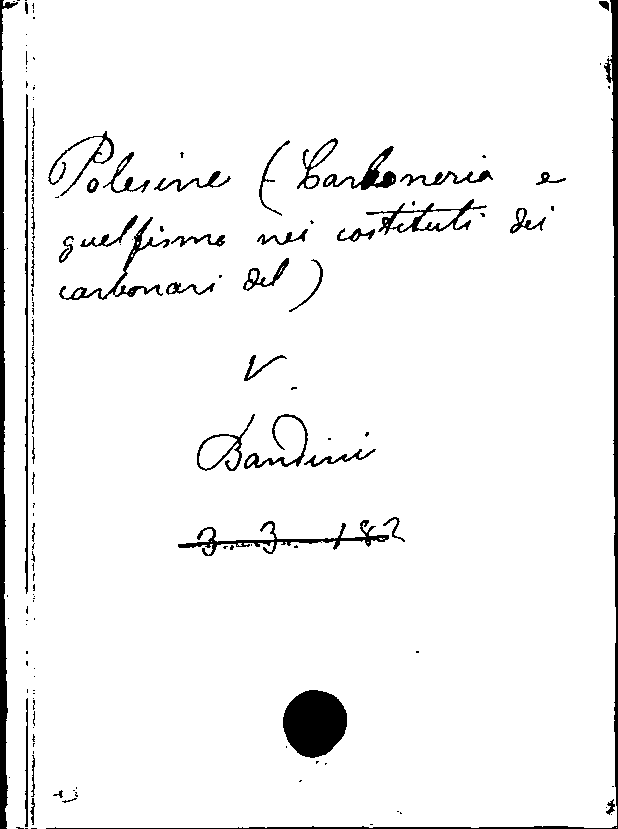 Polesine (Carboneria e
guelfismo nei costituti dei
carbonari del)
V.
Bandini
3. 3. 182